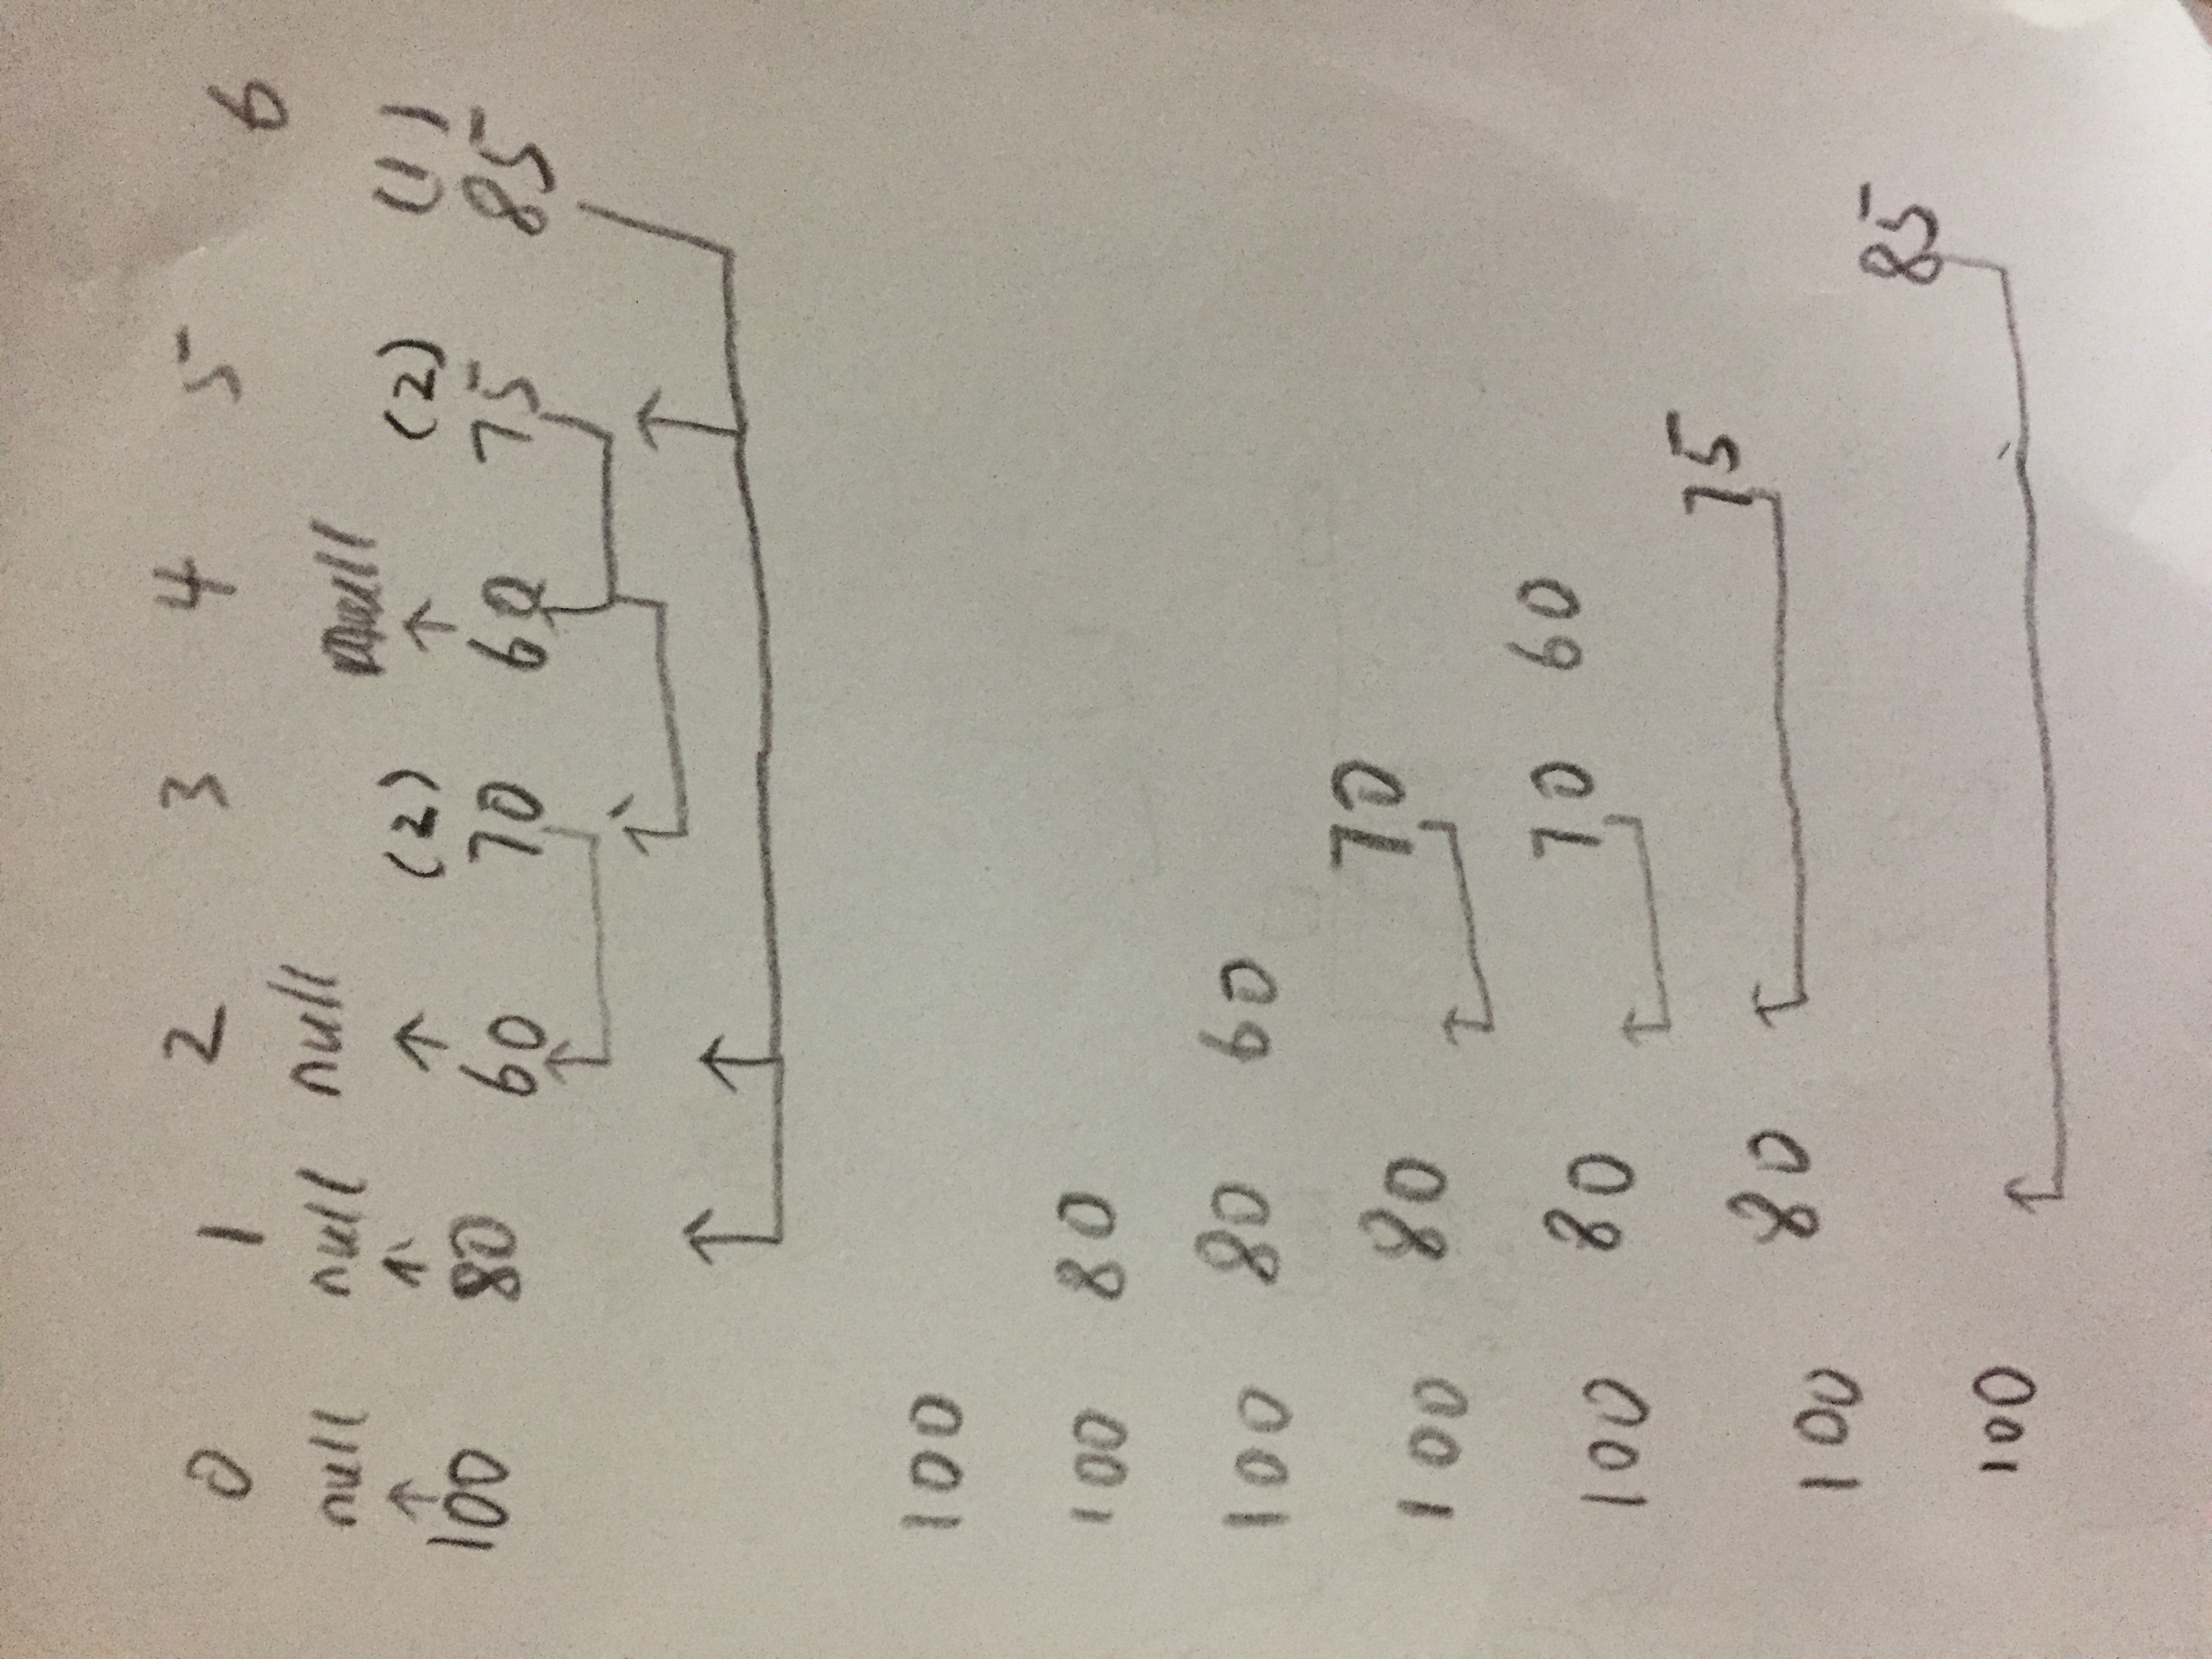 0 1 2 3 4 5 6
null null null null
(2) (2) (1)
100 80 60 70 60 75 85
100
100 80
100 80 60
100 80 70
100 80 70 60
100 80 75
100 85